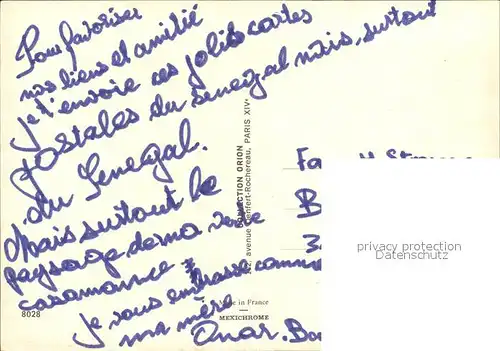 Pour favoriser
nos liens et amitié
je t'envoie ces jolis cartes
postales du senegal mais, surtout
du Senegal.
Mais surtout le
paysage de ma verte
casamance.
je vous embrasse comme
ma mère
Omar. Ba
COLLECTION ORION
avenue Denfert-Rochereau, PARIS XIVe
Made in France
MEXICHROME
8028
Fa
B
3
privacy protection
Datenschutz